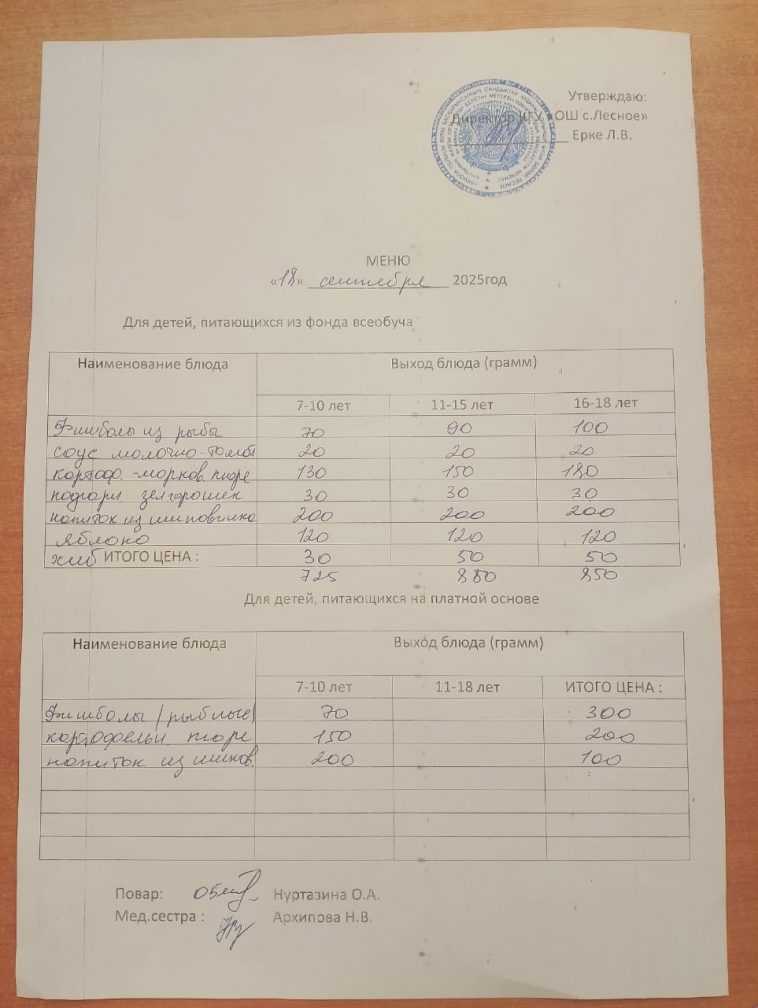 Утверждаю:
Директор КГУ «ОШ с.Лесное»
Ерке Л.В.
МЕНЮ
«18» сентября 2025год
Для детей, питающихся из фонда всеобуча
Наименование блюда Выход блюда (грамм)
7-10 лет 11-15 лет 16-18 лет
Фишболы из рыбы 70 90 100
соус молочно-томат 20 20 20
картоф.-морков. пюре 130 150 180
подгарн. зел горошек 30 30 30
напиток из шиповника 200 200 200
яблоко 120 120 120
хлеб ИТОГО ЦЕНА : 30 50 50
725 880 850
Для детей, питающихся на платной основе
Наименование блюда Выход блюда (грамм)
7-10 лет 11-18 лет ИТОГО ЦЕНА :
Фишболы (рыбные) 70 300
картофельн. пюре 150 200
напиток из шипов. 200 100
Повар: Нуртазина О.А.
Мед.сестра : Архипова Н.В.